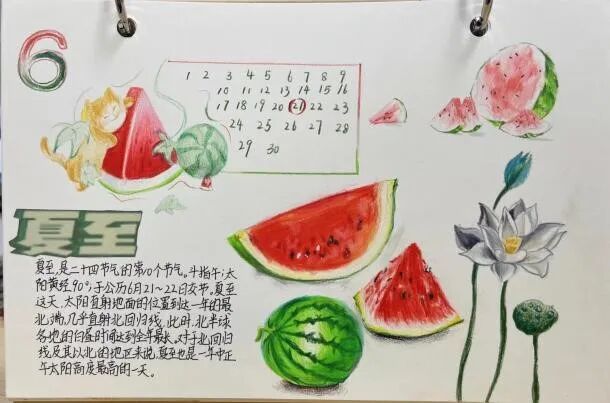 6
1 2 3 4 5 6 7 8 9
10 11 12 13 14 15 16
17 18 19 20 21 22 23
24 25 26 27 28
29 30
夏至
夏至,是二十四节气的第10个节气。斗指午,太
阳黄经90°,于公历6月21~22日交节。夏至
这天,太阳直射地面的位置到达一年的最
北端,几乎直射北回归线,此时,北半球
各地的白昼时间达到全年最长。对于北回归
线及其以北的地区来说,夏至也是一年中正
午太阳高度最高的一天。